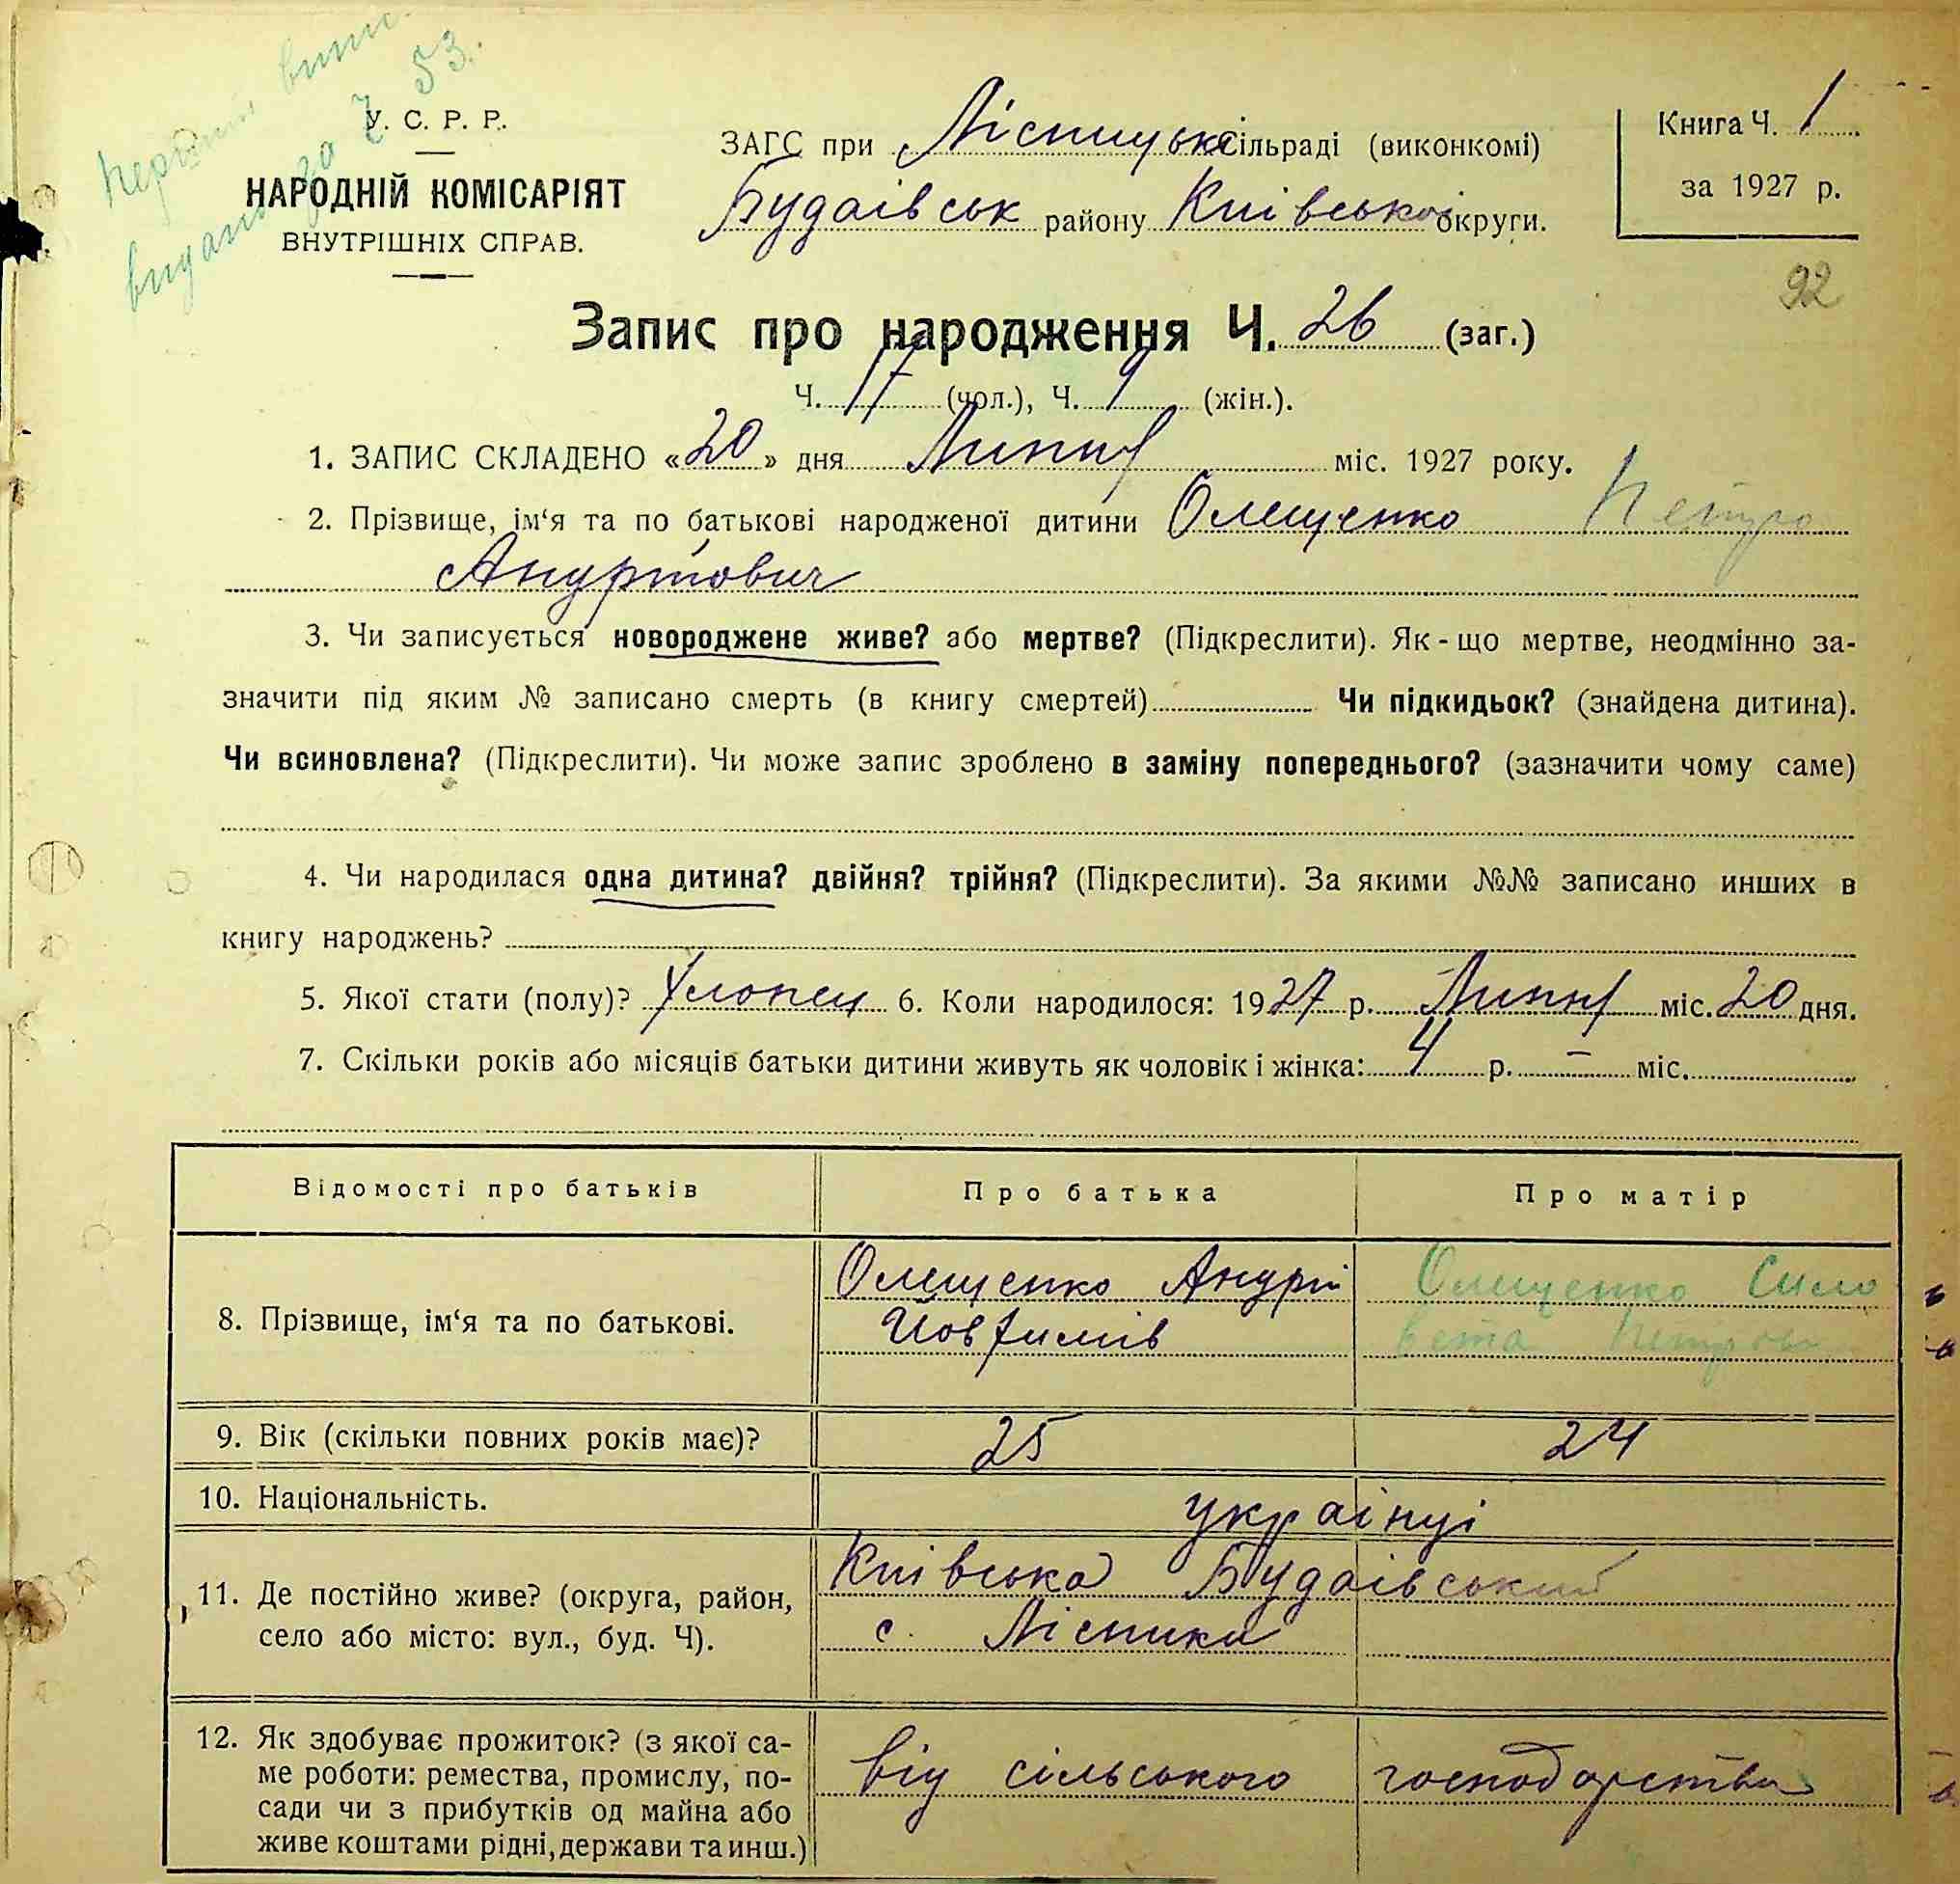 Первий випис
видани за Ч 53.
У. С. Р. Р.
НАРОДНІЙ КОМІСАРІЯТ
ВНУТРІШНІХ СПРАВ.
ЗАГС при Лісницьк сільраді (виконкомі)
Будаівськ району Київської округи.
Книга Ч. 1
за 1927 р.
92
Запис про народження Ч. 26 (заг.)
Ч. 17 (чол.), Ч. 9 (жін.).
1. ЗАПИС СКЛАДЕНО «20» дня Липня міс. 1927 року.
2. Прізвище, ім‘я та по батькові народженої дитини Олещенко Петро
Андрійович
3. Чи записується новороджене живе? або мертве? (Підкреслити). Як-що мертве, неодмінно за-
значити під яким № записано смерть (в книгу смертей) Чи підкидьок? (знайдена дитина).
Чи всиновлена? (Підкреслити). Чи може запис зроблено в заміну попереднього? (зазначити чому саме)
4. Чи народилася одна дитина? двійня? трійня? (Підкреслити). За якими №№ записано инших в
книгу народжень?
5. Якої стати (полу)? Хлопец 6. Коли народилося: 1927 р. Липня міс. 20 дня.
7. Скільки років або місяців батьки дитини живуть як чоловік і жінка: 4 р. — міс.
Відомості про батьків Про батька Про матір
8. Прізвище, ім‘я та по батькові. Олещенко Андрій Олещенко Єлиса
Йовхимів вета Петрова
9. Вік (скільки повних років має)? 25 24
10. Національність. українці
11. Де постійно живе? (округа, район, Київська Будаівський
село або місто: вул., буд. Ч). с. Лісники
12. Як здобуває прожиток? (з якої са-
ме роботи: ремества, промислу, по- від сільського господарства
сади чи з прибутків од майна або
живе коштами рідні, держави та инш.)